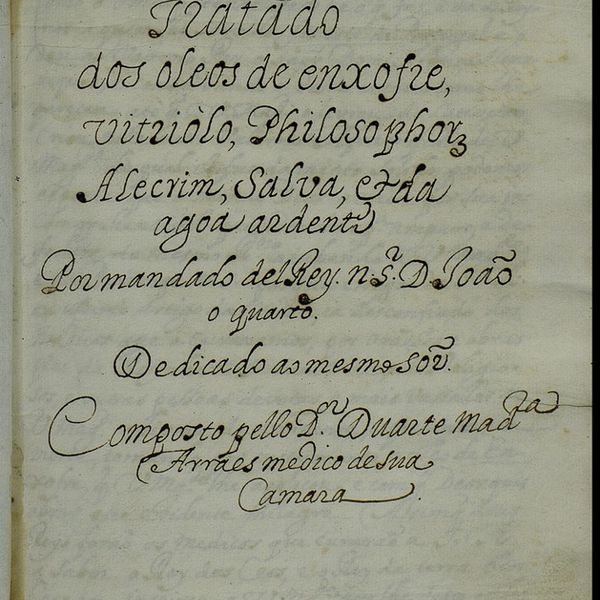 Tratado
dos oleos de enxofre,
vitriòlo, Philosophorꝝ
Alecrim, Salva, & da
agoa ardente
Por mandado del Rey. n. Sr. D. João
o quarto.
Dedicado ao mesmo Sõr.
Composto pello Dor. Duarte Madra
Arraes medico de sua
Camara